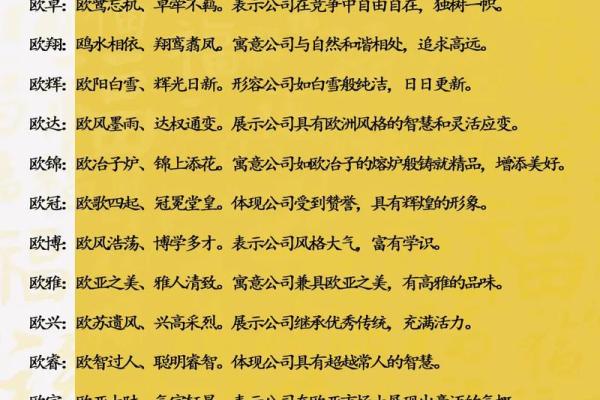 欧卓：欧鹭忘机、卓荦不羁。表示公司在竞争中自由自在，独树一帜。
欧翔：鸥水相依、翔鸾翥凤。寓意公司与自然和谐相处，追求高远。
欧辉：欧阳白雪、辉光日新。形容公司如白雪般纯洁，日日更新。
欧达：欧风墨雨、达权通变。展示公司具有欧洲风格的智慧和灵活应变。
欧锦：欧冶子炉、锦上添花。寓意公司如欧冶子的熔炉般铸就精品，增添美好。
欧冠：欧歌四起、冠冕堂皇。体现公司受到赞誉，具有辉煌的形象。
欧博：欧风浩荡、博学多才。表示公司风格大气，富有学识。
欧雅：欧亚之美、雅人清致。寓意公司兼具欧亚之美，有高雅的品味。
欧兴：欧苏遗风、兴高采烈。展示公司继承优秀传统，充满活力。
欧睿：欧智过人、聪明睿智。体现公司具有超越常人的智慧。